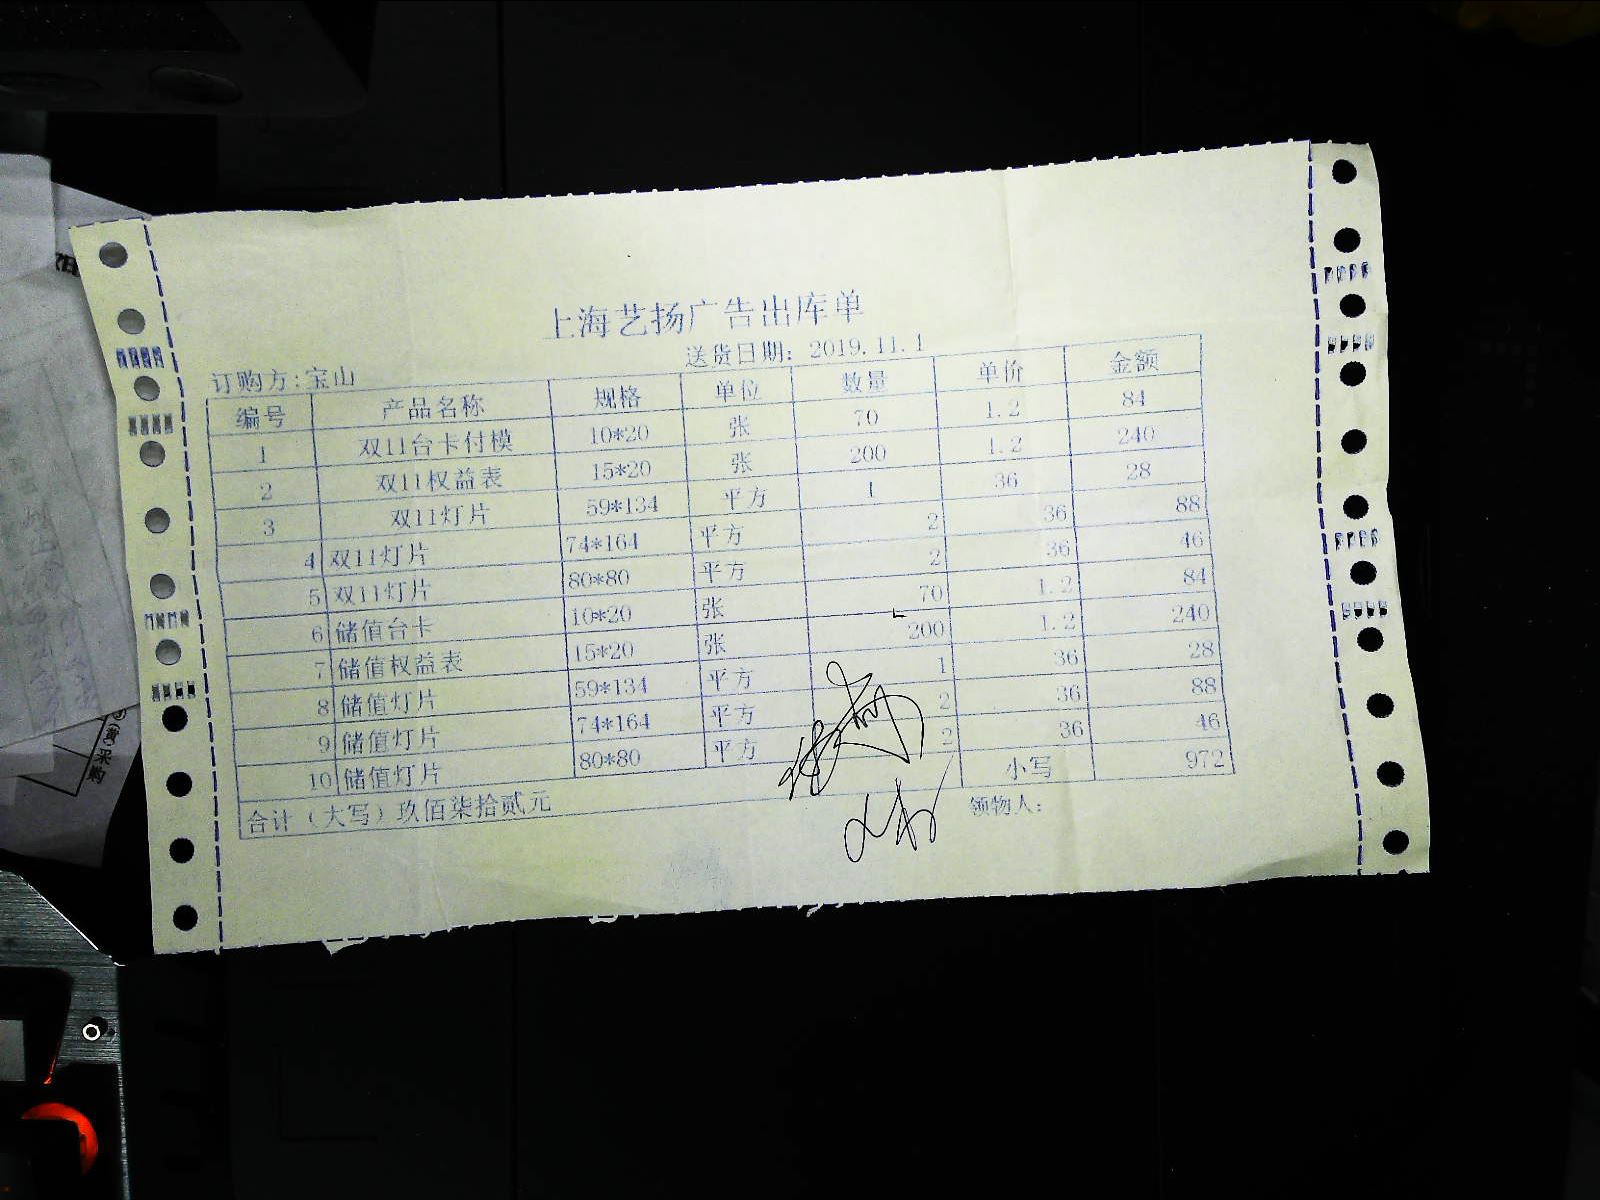 上海艺扬广告出库单
订购方:宝山 送货日期: 2019.11.1
编号 产品名称 规格 单位 数量 单价 金额
1 双11台卡付模 10*20 张 70 1.2 84
2 双11权益表 15*20 张 200 1.2 240
3 双11灯片 59*134 平方 1 36 28
4 双11灯片 74*164 平方 2 36 88
5 双11灯片 80*80 平方 2 36 46
6 储值台卡 10*20 张 70 1.2 84
7 储值权益表 15*20 张 200 1.2 240
8 储值灯片 59*134 平方 1 36 28
9 储值灯片 74*164 平方 2 36 88
10 储值灯片 80*80 平方 2 36 46
合计（大写）玖佰柒拾贰元 小写 972
领物人:
(黄)采购